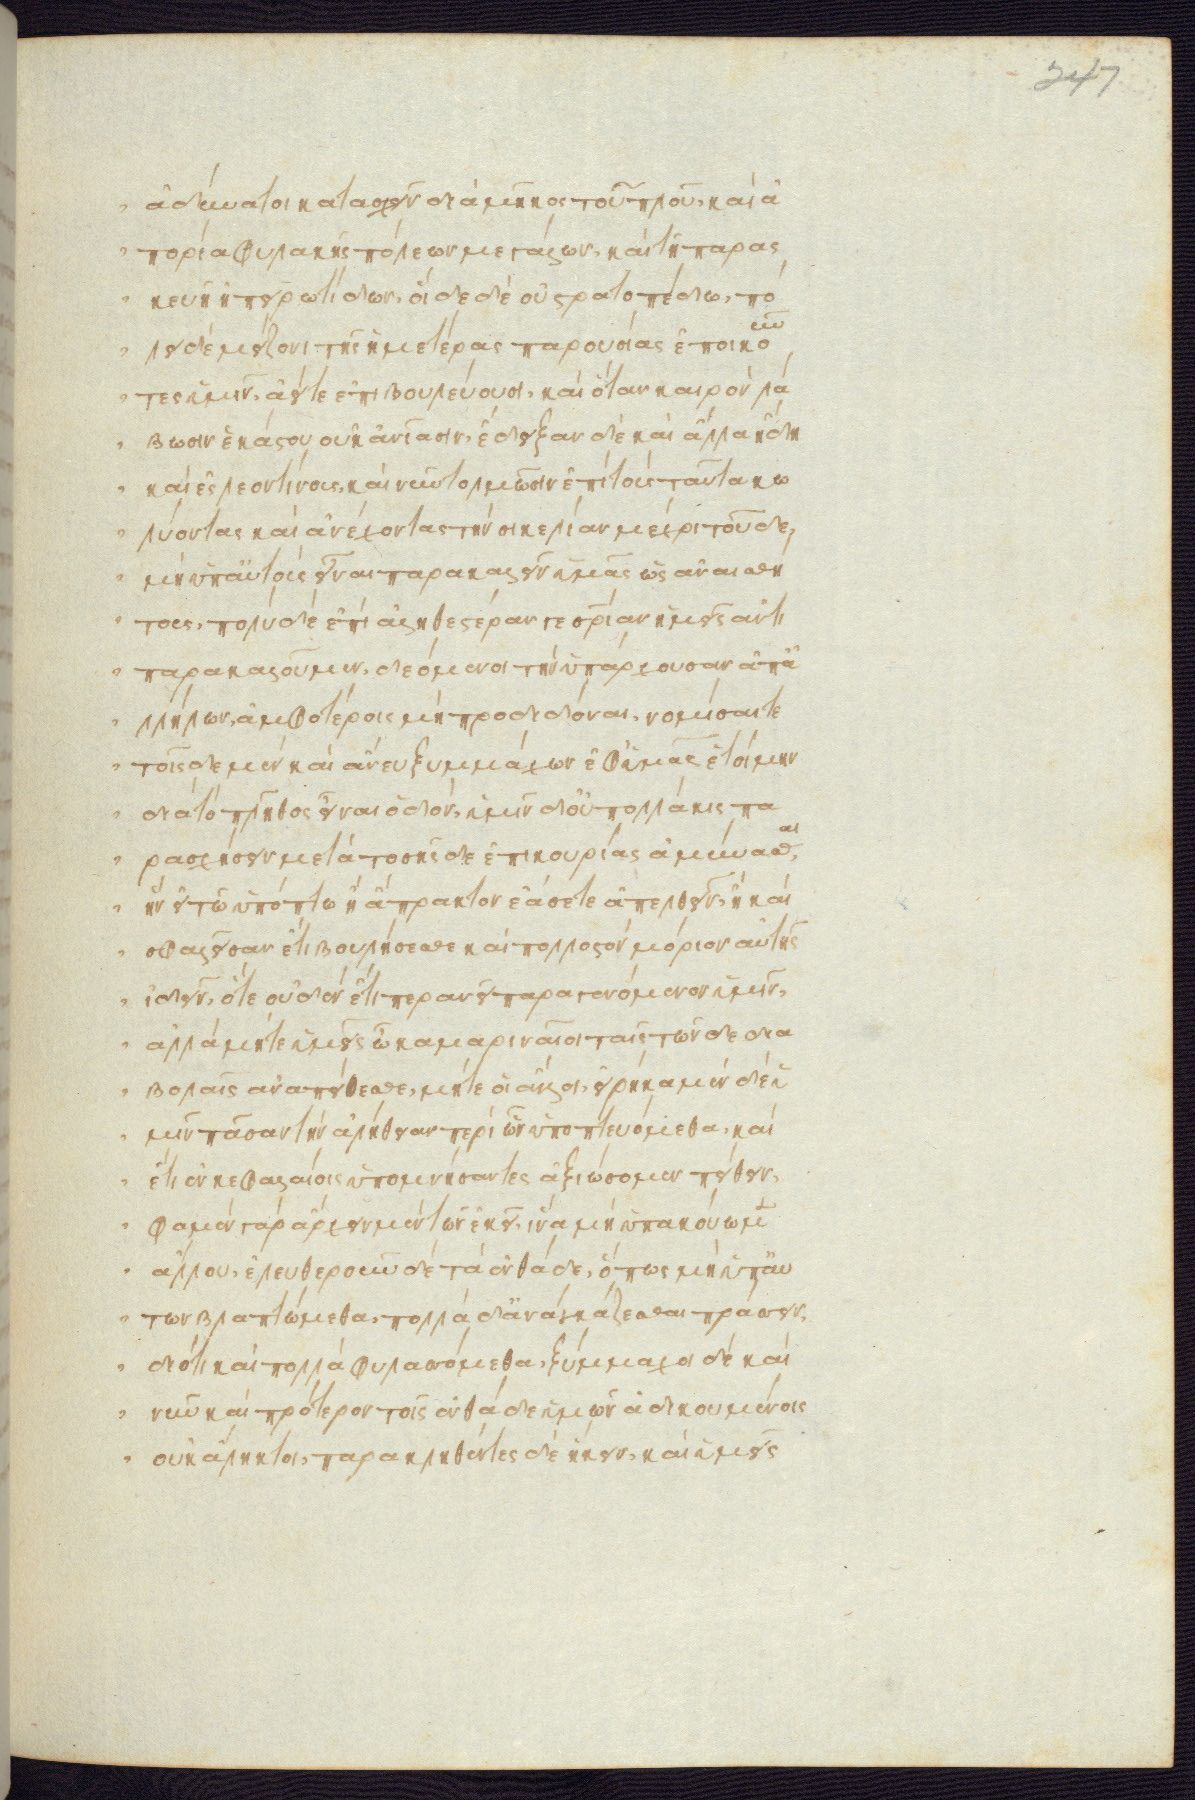 247
ἀδύνατοι κατασχεῖν διὰ μῆκος τοῦ πλοῦ, καὶ ἀ
πορία φυλακῆς πόλεων μεγάλων, καὶ τῆ παρας
κευῆ ἠπειρωτίδων, οἱ δὲ δὲ οὐ στρατοπέδω, πό
λει δὲ μείζονι τῆς ἡμετέρας παρουσίας ἐποικοῦν
τες ὑμῖν, ἀεί τε ἐπιβουλεύουσι, καὶ ὅταν καιρὸν λά
βωσιν ἑκάστου οὐκ ἀνιᾶσιν, ἔδειξαν δὲ καὶ ἄλλα ἤδη
καὶ ἐς λεοντίνους, καὶ νῦν τολμῶσιν ἐπὶ τοὺς ταῦτα κω
λύοντας καὶ ἀνέχοντας τὴν σικελίαν μέχρι τοῦδε,
μὴ ὑπ' αὐτοὺς εἶναι παρακαλεῖν ὑμᾶς ὡς ἀναισθή
τους, πολὺ δὲ ἐπὶ ἀληθεστέραν γε σωτηρίαν ἡμεῖς ἀντι
παρακαλοῦμεν, δεόμενοι τὴν ὑπάρχουσαν ἀπ' ἀ
λλήλων, ἀμφοτέροις μὴ προδιδόναι, νομίσαι τε
τοῖσδε μὲν καὶ ἄνευ ξυμμάχων ἐφ' ὑμᾶς ἑτοίμην
διὰ τὸ πλῆθος εἶναι ὁδόν, ὑμῖν δ' οὐ πολλάκις πα
ρασχήσειν μετὰ τοσῆσδε ἐπικουρίας ἀμύνασθαι,
ἣν εἰ τῶ ὑπόπτω ἢ ἄπρακτον ἐάσετε ἀπελθεῖν, ἢ καὶ
σφαλεῖσαν ἔτι βουλήσεσθε καὶ πολλοστὸν μόριον αὐτῆς
ἰδεῖν, ὅτε οὐδὲν ἔτι περανεῖ παραγενόμενον ὑμῖν,
ἀλλὰ μήτε ὑμεῖς ὦ καμαριναῖοι ταῖς τῶνδε δια
βολαῖς ἀναπείθεσθε, μήτε οἱ ἄλλοι, εἰρήκαμεν δὲ ὑ
μῖν πᾶσαν τὴν ἀλήθειαν περὶ ὧν ὑποπτευόμεθα, καὶ
ἔτι ἐν κεφαλαίοις ὑπομνήσαντες ἀξιώσομεν πείθειν,
φαμὲν γὰρ ἄρχειν μὲν τῶν ἐκεῖ, ἵνα μὴ ὑπακούωμεν
ἄλλου, ἐλευθεροῦν δὲ τὰ ἐνθάδε, ὅπως μὴ ὑπ' αὐ
τῶν βλαπτώμεθα, πολλὰ δ' ἀναγκάζεσθαι πράσσειν,
διότι καὶ πολλὰ φυλασσόμεθα, ξύμμαχοι δὲ καὶ
νῦν καὶ πρότερον τοῖς ἐνθάδε ὑμῶν ἀδικουμένοις
οὐκ ἄκλητοι, παρακληθέντες δὲ ἥκειν, καὶ ὑμεῖς